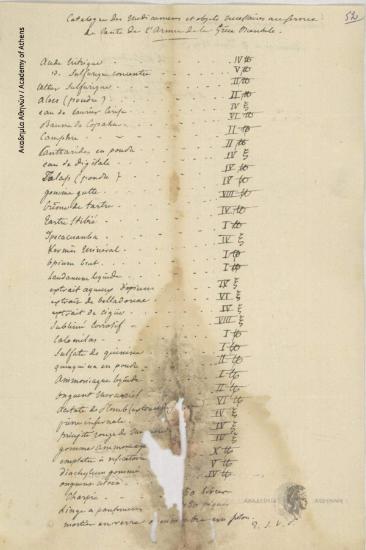 52
Catalogue des Médicamens et objets nécessaires au service
de santé de l'Armée de la Grèce Orientale.
Acide Nitrique IV ℔
id. Sulfurique concentré V ℔
Ether Sulfurique II ℔
Aloès (poudre) II ℔
eau de laurier cerise IV ℥
Baume de Copahu VI ℔
Camphre II ℔
Cantharides en poudre II ℔
eau de digitale IV ℥
Jalap (poudre) IV ℔
gomme gutte IV ℥
Crême de tartre VIII ℔
Tartre Stibié IV ℥
Ipecacuanha I ℔
Kermès minéral IV ℥
Opium brut I ℔
laudanum liquide I ℔
extrait aqueux d'opium IV ℥
extrait de belladone VI ℥
extrait de ciguë IV ℥
Sublimé corrosif VIII ℥
Calomelas I ℔
Sulfate de quinine I ℔
quinquina en poudre II ℔
Ammoniaque liquide I ℔
onguent mercuriel II ℔
acétate de plomb VI ℔
pierre infernale IV ℥
précipité rouge de IV ℥
gomme ammoniaque IV ℥
emplâtre à vésicatoire X ℔
diachylum gommé V ℔
onguent IV ℔
Charpie 50
Linge à pansement
mortier en verre
Ακαδημία Αθηνών / Academy of Athens
ΑΚΑΔΗΜΙΑ ΑΘΗΝΩΝ